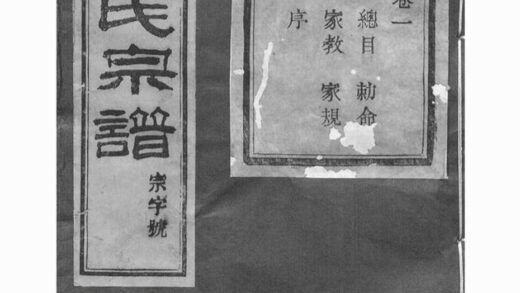 卷一
總目 勅命
家教 家規
序
氏宗譜
宗字號